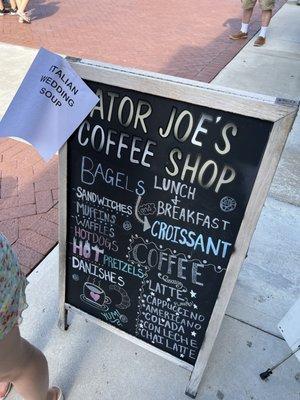 ITALIAN
WEDDING
SOUP
ATOR JOE'S
COFFEE SHOP
BAGELS
LUNCH
&
BREAKFAST
CROISSANT
SANDWICHES
MUFFINS
WAFFLES
HOTDOGS
HOT PRETZELS
DANISHES
YUM!
COFFEE
LATTE
CAPPUCCINO
AMERICANO
COLADA
CON LECHE
CHAI LATTE